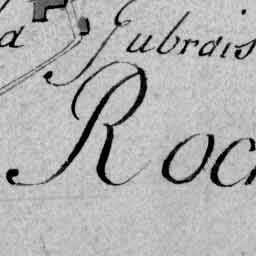 a Jubrais
Roc